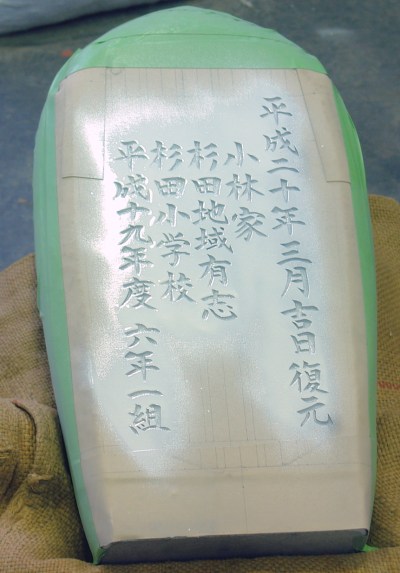 平成二十年三月吉日復元
小林家
杉田地域有志
杉田小学校
平成十九年度 六年一組